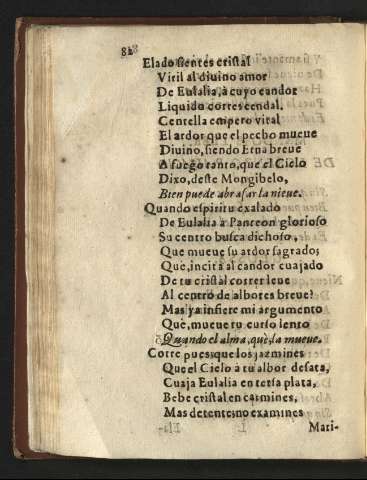 82
Elado sientes cristal
Viril al diuino amor
De Eulalia, à cuyo candor
Liquido corres cendal.
Centella empero vital
El ardor que el pecho mueue
Diuino, siendo Etna breue
A fuego tanto, que el Cielo
Dixo, deste Mongibelo,
Bien puede abrasar la nieue.
Quando espiritu exalado
De Eulalia à Panteon glorioso
Su centro busca dichoso,
Que mueue su ardor sagrado;
Que, incita al candor cuajado
De tu cristal correr leue
Al centro de albores breue?
Mas ya infiere mi argumento
Que, mueue tu curso lento
Quando el alma, que, la mueue.
Corre pues; que los jazmines
Que el Cielo à tu albor desata,
Cuaja Eulalia en tersa plata,
Bebe cristal en carmines,
Mas detente; no examines
Mari-